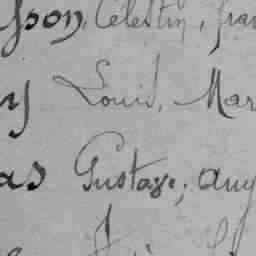 sson, Célestin, fran
y Louis, Mar
as Gustave, aug